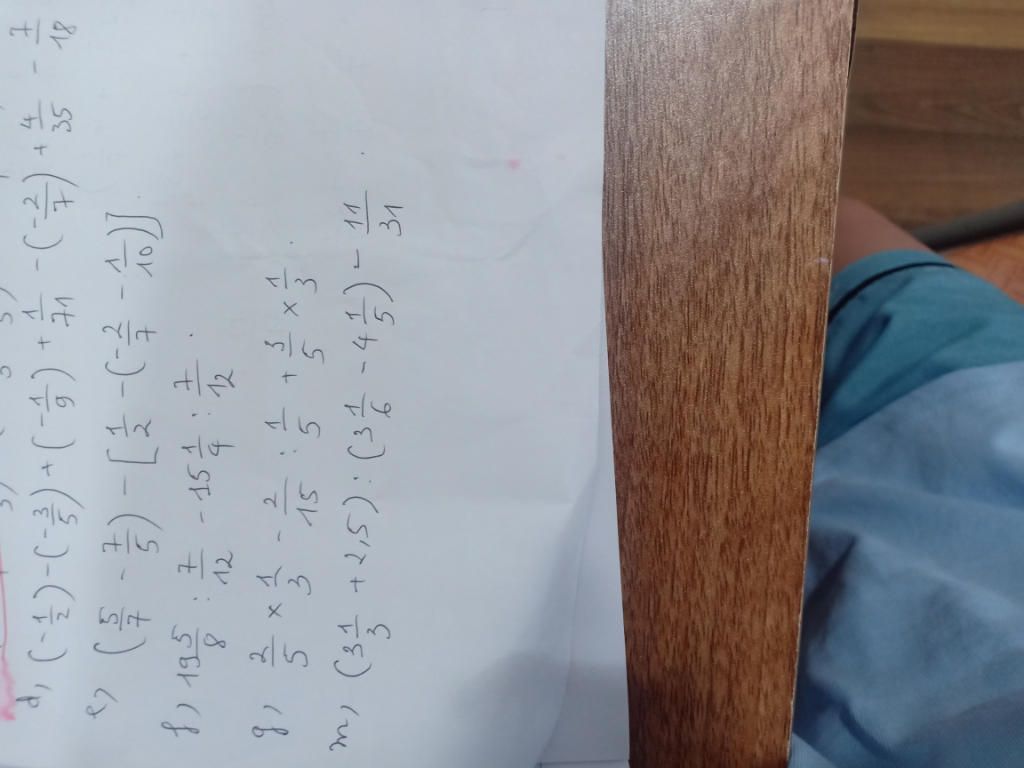 d, (-1/2) - (-3/5) + (-1/9) + 1/71 - (-2/7) + 4/35 - 7/18
e, (5/7 - 7/5) - [1/2 - (-2/7 - 1/10)].
f, 19 5/8 : 7/12 - 15 1/4 : 7/12.
g, 2/5 × 1/3 - 2/15 : 1/5 + 3/5 × 1/3.
m, (3 1/3 + 2,5) : (3 1/6 - 4 1/5) - 11/31.